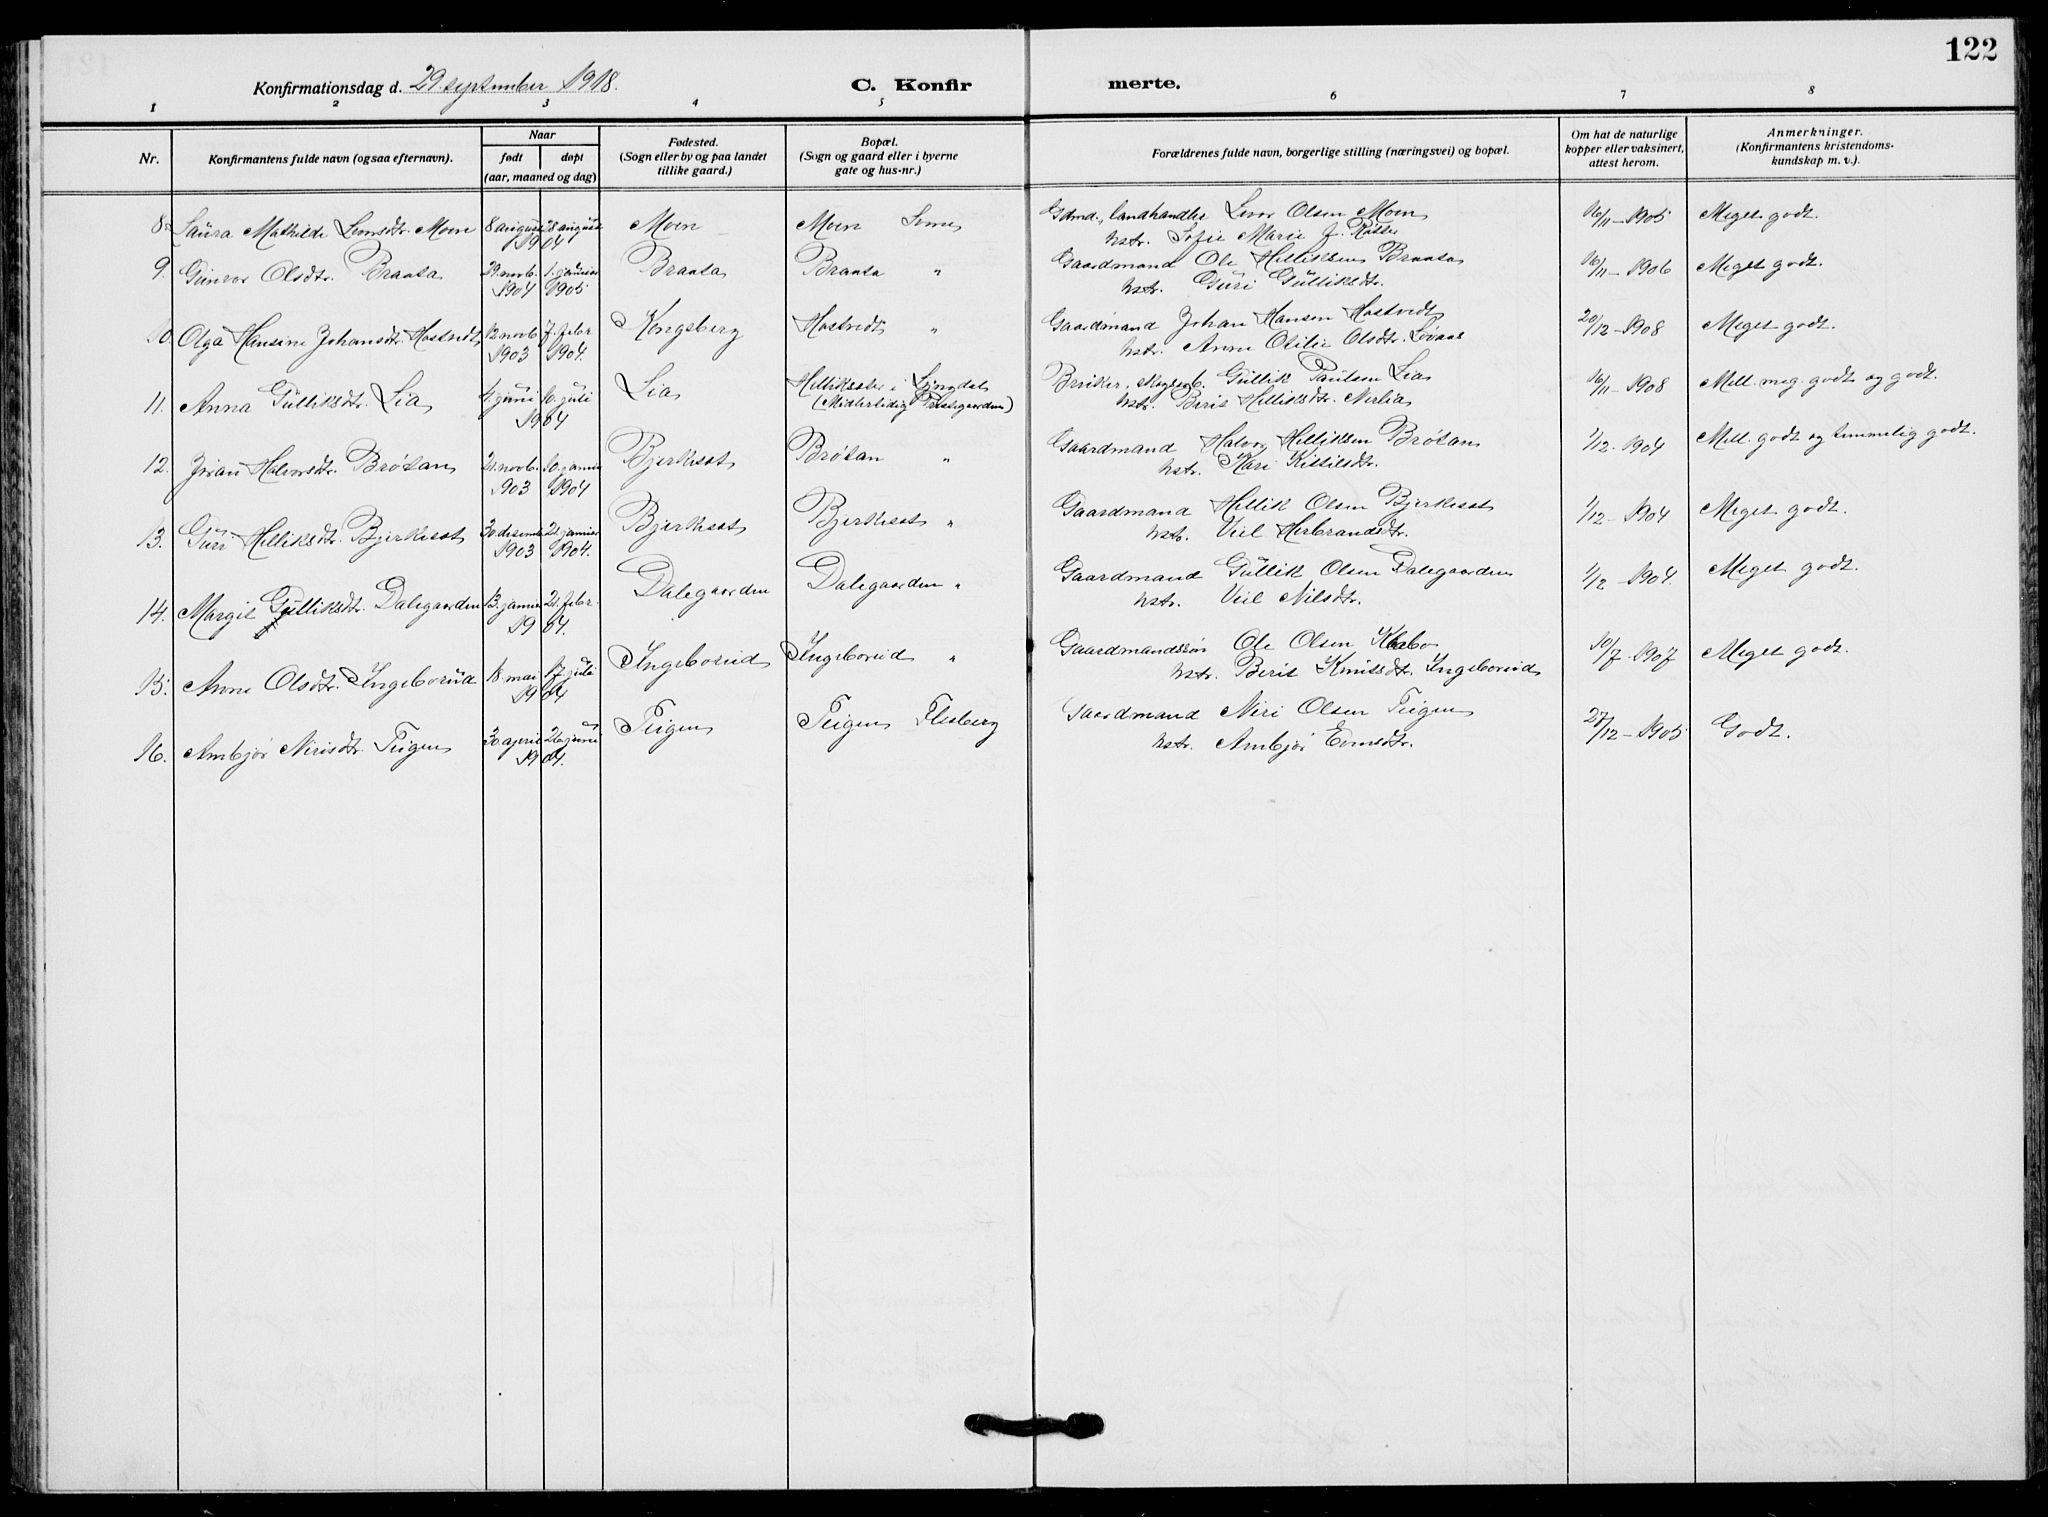 122
Konfirmationsdag d. 29. september 1918.
C. Konfirmerte.
1 2 3 4 5 6 7 8
Nr.
Konfirmantens fulde navn (ogsaa efternavn).
Naar
født døpt
(aar, maaned og dag)
Fødested.
(Sogn eller by og paa landet
tillike gaard.)
Bopæl.
(Sogn og gaard eller i byerne
gate og hus-nr.)
Forældrenes fulde navn, borgerlige stilling (næringsvei) og bopæl.
Om hat de naturlige
kopper eller vaksinert,
attest herom.
Anmerkninger.
(Konfirmantens kristendoms-
kundskap m. v.).
8. Laura Mathilde Levorsdtr. Moen 8 august 28 august Moen Moen Svene Gdmd., landhandler Levor Olsen Moen 16/11-1905 Meget godt.
1904 hstr. Sofie Marie f.
9. Gunvor Olsdtr. Braata 29. novb. 1. januar Braata Braata " Gaardmand Ole Helliksen Braata 16/11-1906 Meget godt.
1904 1905 hstr. Guri Gulliksdtr.
10. Olga Hansine Johansdtr. Hostvedt 12 novb. 7. febr Kongsberg Hostvedt " Gaardmand Johan Hansen Hostvedt 20/12-1908 Meget godt.
1903 1904. hstr. Anne Otilie Olsdtr. Løvaas
11. Anna Gulliksdtr. Lia 4. juni 10. juli Lia Helliksæter i Lyngdal Bruker, skogarb. Gullik Paulsen Lia 16/11-1908 Mell. meg. godt og godt.
1904 (Midlertidig Prestegaarden) hstr. Berit Helliksdtr. Nerlia
12. Jøran Halvorsdtr. Brøtan 21. novb. 10. januar Bjerkeset Brøtan " Gaardmand Halvor Helliksen Brøtan 1/12-1904 Mell. godt og temmelig godt.
1903 1904 hstr. Kari Kittilsdtr.
13. Guri Helliksdtr. Bjerkeset 30 desember 21. januar Bjerkeset Bjerkeset " Gaardmand Hellik Olsen Bjerkeset 1/12-1904 Meget godt.
1903 1904. hstr. Viel Herbrandsdtr.
14. Margit Gulliksdtr. Dalegaarden 13. januar 21. febr. Dalegaarden Dalegaarden " Gaardmand Gullik Olsen Dalegaarden 1/12-1904. Meget godt.
1904. hstr. Viel Nilsdtr.
15. Anne Olsdtr. Ingeborud 18. mai 17. juli Ingeborud Ingeborud " Gaardmandssøn Ole Olsen 10/7-1907 Meget godt.
1904 hstr. Berit Knutsdtr. Ingeborud
16. Ambjør Nirisdtr. Teigen 30 april 26. juni Teigen Teigen Flesberg Gaardmand Niri Olsen Teigen 27/12-1905 Godt.
1904. hstr. Ambjør Evensdtr.